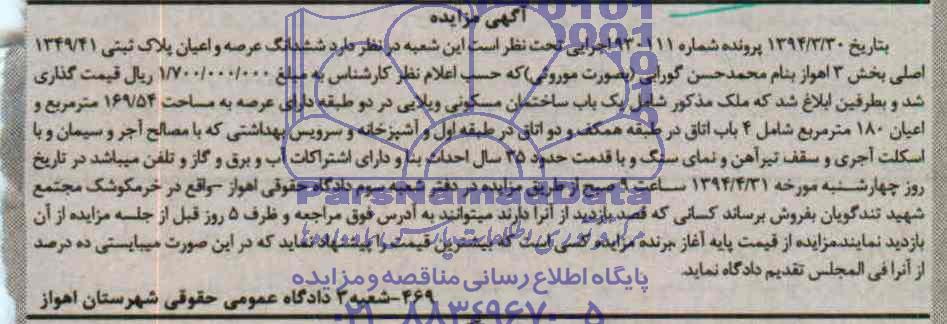 آگهی مزایده
بتاریخ ۱۳۹۴/۳/۳۰ پرونده شماره ۹۳۰۱۱۱ اجرایی تحت نظر است این شعبه در نظر دارد ششدانگ عرصه و اعیان پلاک ثبتی ۱۳۴۹/۴۱
اصلی بخش ۳ اهواز بنام محمدحسن گورابی (بصورت موروثی) که حسب اعلام نظر کارشناس به مبلغ ۱/۷۰۰/۰۰۰/۰۰۰ ریال قیمت گذاری
شد و بطرفین ابلاغ شد که ملک مذکور شامل یک باب ساختمان مسکونی ویلایی در دو طبقه دارای عرصه به مساحت ۱۶۹/۵۴ مترمربع و
اعیان ۱۸۰ مترمربع شامل ۴ باب اتاق در طبقه همکف و دو اتاق در طبقه اول و آشپزخانه و سرویس بهداشتی که با مصالح آجر و سیمان و با
اسکلت آجری و سقف تیرآهن و نمای سنگ و با قدمت حدود ۳۵ سال احداث بنا و دارای اشتراکات آب و برق و گاز و تلفن میباشد در تاریخ
روز چهارشنبه مورخه ۱۳۹۴/۴/۳۱ ساعت ۹ صبح از طریق مزایده در دفتر شعبه سوم دادگاه حقوقی اهواز -واقع در خرمکوشک مجتمع
شهید تندگویان بفروش برساند کسانی که قصد بازدید از آنرا دارند میتوانند به آدرس فوق مراجعه و ظرف ۵ روز قبل از جلسه مزایده از آن
بازدید نمایند.مزایده از قیمت پایه آغاز ،برنده مزایده کسی است که بیشترین قیمت را پیشنهاد نماید که در این صورت میبایستی ده درصد
از آنرا فی المجلس تقدیم دادگاه نماید.
۴۶۹-شعبه۳ دادگاه عمومی حقوقی شهرستان اهواز
ParsNamadData
پایگاه اطلاع رسانی مناقصه و مزایده
۰۲۱-۸۸۳۴۹۶۷۰-۵